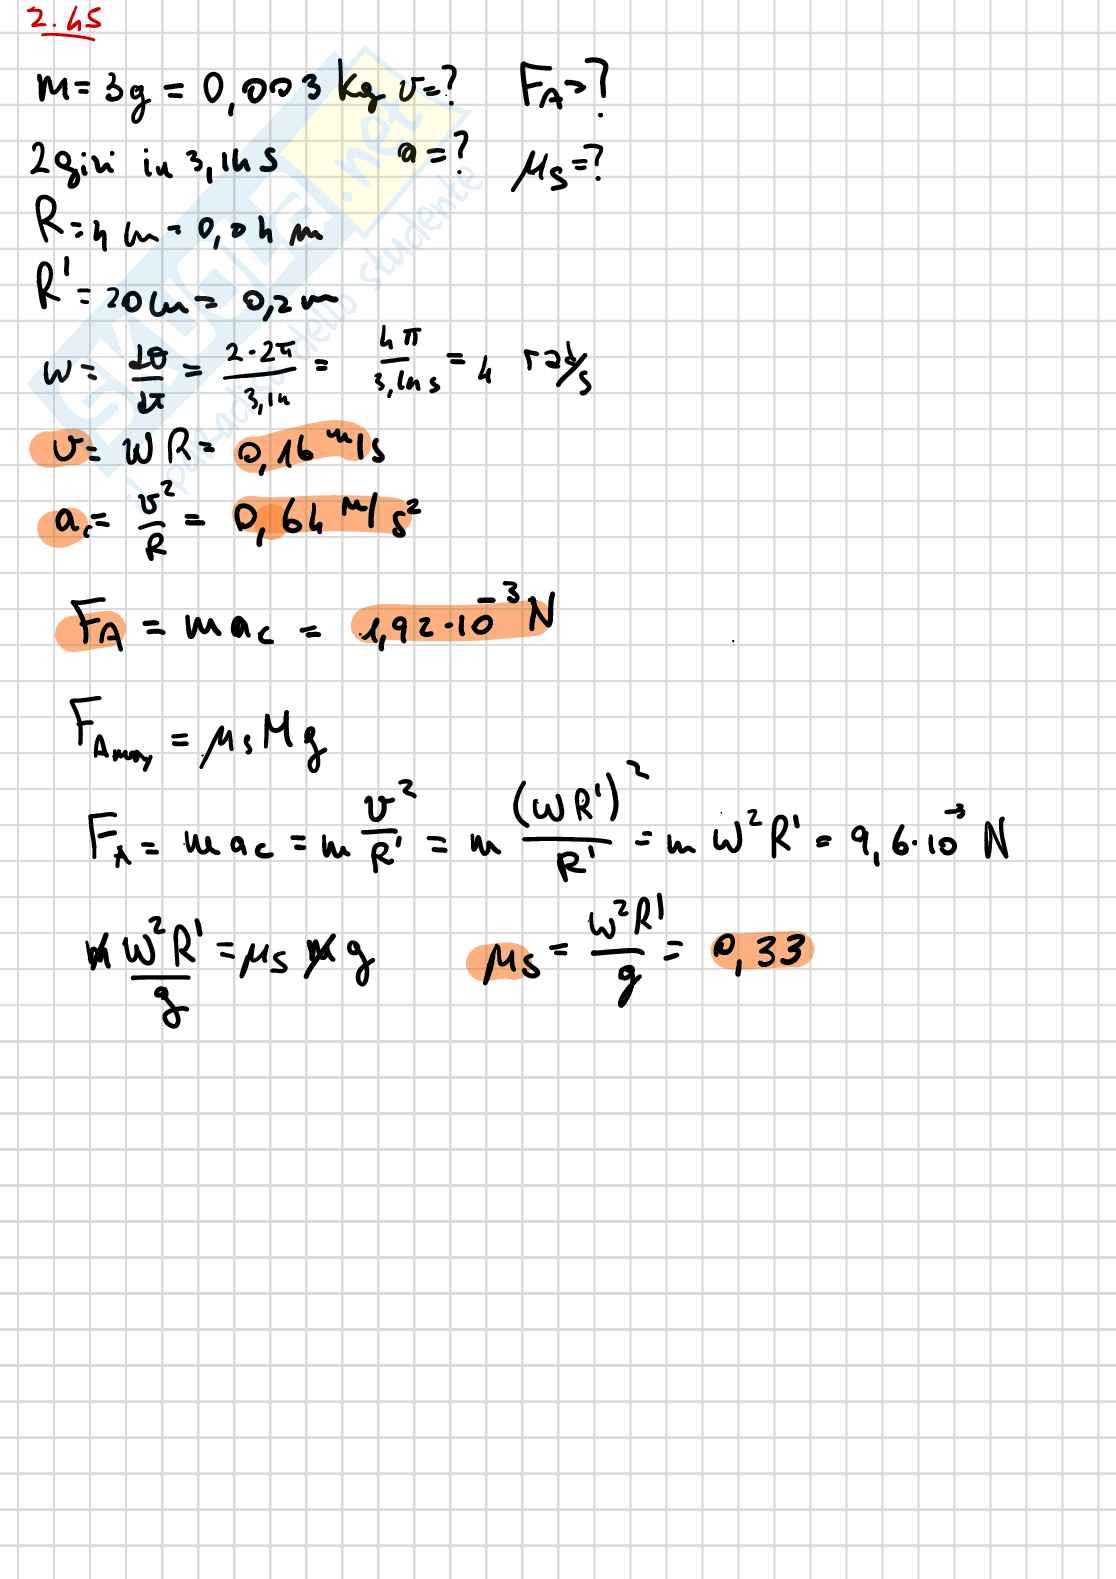 2.45
m = 3g = 0,003 kg v=? F_A=?
2 giri in 3,14 s a=? μ_s=?
R = 4 cm = 0,04 m
R' = 20 cm = 0,2 m
ω = dθ/dt = 2·2π/3,14 = 4π/3,14 s = 4 rad/s
v = ωR = 0,16 m/s
a_c = v²/R = 0,64 m/s²
F_A = m a_c = 1,92·10⁻³ N
F_A max = μ_s M g
F_A = m a_c = m v²/R' = m (ωR')²/R' = m ω² R' = 9,6·10⁻³ N
m ω²R'/g = μ_s m g μ_s = ω²R'/g = 0,33
SKUOLA.net